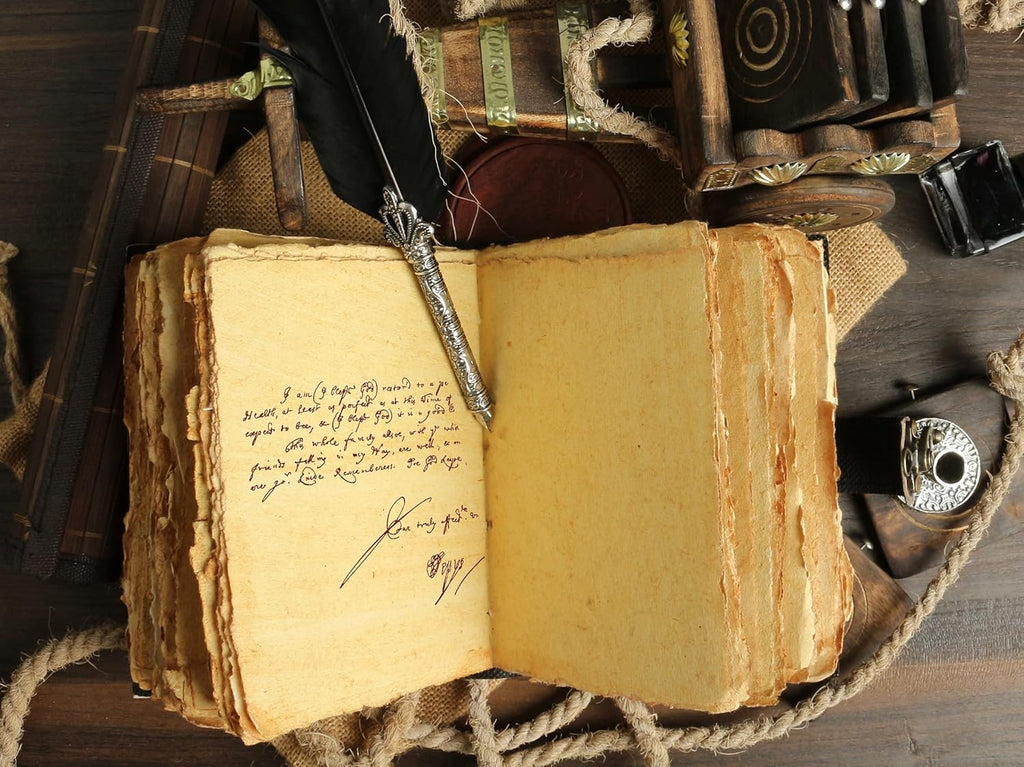 I am (I bless God) return'd to a go
Health, at least as perfect as at this Time of
expect to bee, & (I bless God) it is a good
This whole family alsoe, with yᵉ whole
friends falling in my Way, are well, & m
over yoʳ. Kinde Remembrances. I've God keepe
Your truly affectᵗᵉ
SPepys